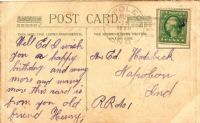 POST CARD
Well Ed I wish
you a happy
birthday and many
more and many
more this card is
from you old
friend Henry,
Mr Ed
Napoleon
Ind
R.R. No 1